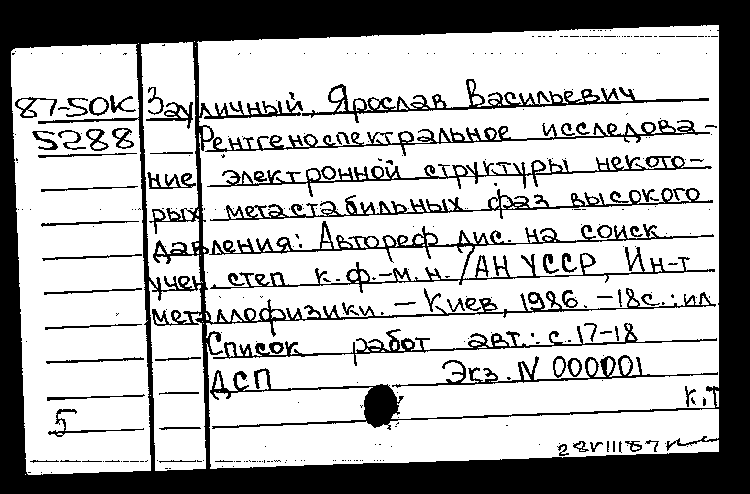 87-50К Заyличный, Ярослав Васильевич
5288 Рентгеноспектральное исследова-
ние электронной структуры некото-
рых метастабильных фаз высокого
давления: Автореф дис. на соиск.
учен. степ к.ф.-м.н. /АН УССР, Ин-т
металлофизики. – Киев, 1986. – 18с.: ил
Список работ авт.: с. 17-18
ДСП Экз. N 000001
К.Т
5
28VIII87